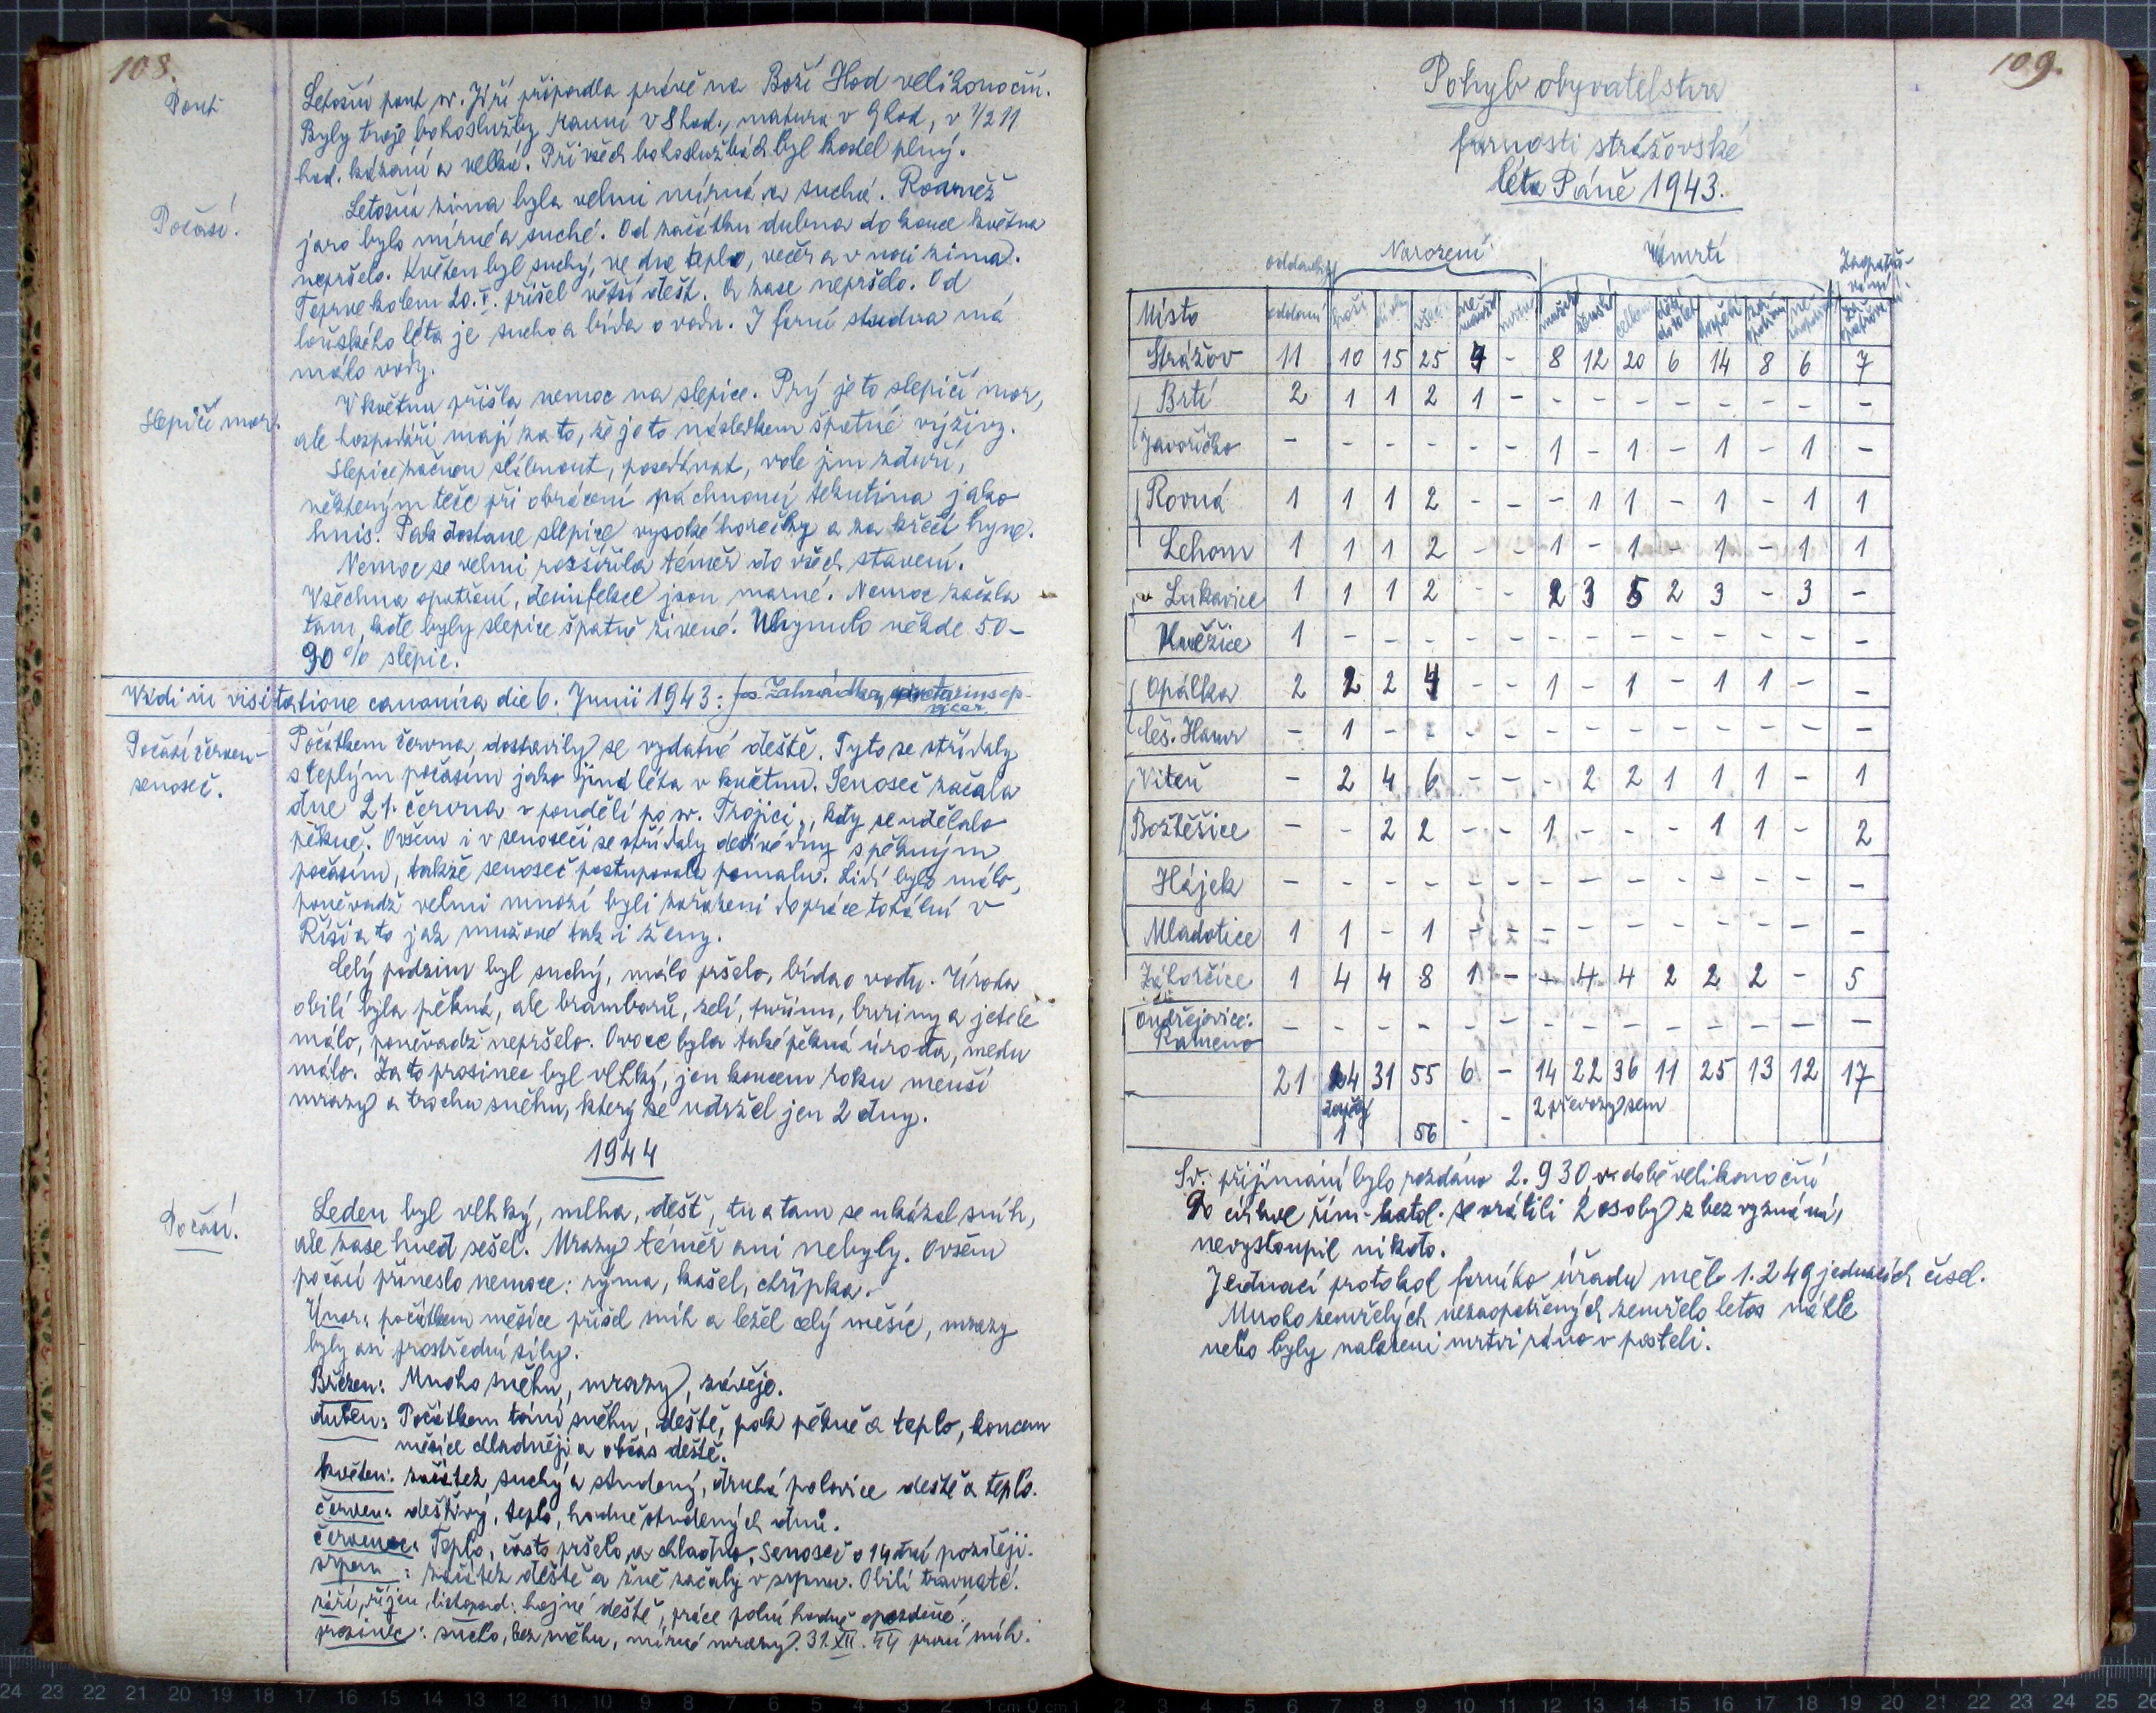 108.
Pouť
Letošní pouť sv. Jiří připadla právě na Boží Hod velikonoční.
Byly troje bohoslužby ranní v 8 hod., matura v 9 hod, v 1/2 11
hod. kázání a velká. Při všech bohoslužbách byl kostel plný.
Počasí.
Letošní zima byla velmi mírná a suchá. Rovněž
jaro bylo mírné a suché. Od začátku dubna do konce května
nepršelo. Květen byl suchý, ve dne teplo, večer a v noci zima.
Teprve kolem 20. V. přišel větší dešť. A zase nepršelo. Od
loňského léta je sucho a bída o vodu. I farní studna má
málo vody.
Slepičí mor.
V květnu přišla nemoc na slepice. Prý je to slepičí mor,
ale hospodáři mají za to, že je to následkem špatné výživy.
Slepice začnou slábnout, posedávat, vole jim ztuří,
některým teče při obrácení páchnoucí tekutina jako
hnis. Pak dostane slepice vysoké horečky a za křečí hyne.
Nemoc se velmi rozšířila téměř do všech stavení.
Všechna opatření, desinfekce jsou marné. Nemoc začala
tam, kde byly slepice špatně živené. Uhynulo někde 50-
90% slepic.
Vidi in visitatione canonica die 6. Junii 1943: Jos. Zahrádka, ep.
vicar.
Počasí červen-
senoseč.
Počátkem června dostavily se vydatné deště. Tyto se střídaly
s teplým počasím jako jiná léta v květnu. Senoseč začala
dne 21. června v pondělí po sv. Trojici, kdy se udělalo
pěkně. Ovšem i v senoseči se střídaly deštivé dny s pěkným
počasím, takže senoseč postupovala pomalu. Lidí bylo málo,
poněvadž velmi mnozí byli zařazeni do práce totální v
Říši a to jak mužové tak i ženy.
Celý podzim byl suchý, málo pršelo, bída o vodu. Úroda
obilí byla pěkná, ale bramborů, zelí, tuřínu, buriny a jetele
málo, poněvadž nepršelo. Ovoce byla také pěkná úroda, medu
málo. Za to prosinec byl vlhký, jen koncem roku menší
mrazy a trochu sněhu, který se udržel jen 2 dny.
1944
Počasí.
Leden byl vlhký, mlha, dešť, tu a tam se ukázal sníh,
ale zase hned sešel. Mrazy téměř ani nebyly. Ovšem
počasí přineslo nemoce: rýma, kašel, chřipka.
Únor: počátkem měsíce přišel sníh a ležel celý měsíc, mrazy
byly asi prostřední síly.
Březen: Mnoho sněhu, mrazy, závěje.
duben: Počátkem tání sněhu, deště, pak pěkně a teplo, koncem
měsíce chladněji a občas deště.
květen: začátek suchý a studený, druhá polovice deště a teplo.
červen: deštivý, teplo, hodně studených dnů.
červenec: Teplo, často pršelo a chladno, senoseč o 14 dní později.
srpen: začátek deště a žně začaly v srpnu. Obilí travnaté.
září, říjen, listopad: hojné deště, práce polní hodně opozděné.
prosinec: sucho, bez sněhu, mírné mrazy. 31. XII. 44 první sníh.
109.
Pohyb obyvatelstva
farnosti strážovské
léta Páně 1943.
oddavky Narození Úmrtí Zaopatřo-
vání
Místo oddaní hoši dívky všech
Strážov 11 10 15 25 4 - 8 12 20 6 14 8 6 7
Brtí 2 1 1 2 1 - - - - - - - - -
Javoříčko - - - - - - 1 - 1 - 1 - 1 -
Rovná 1 1 1 2 - - - 1 1 - 1 - 1 1
Lehom 1 1 1 2 - - 1 - 1 - 1 - 1 1
Lukavice 1 1 1 2 - - 2 3 5 2 3 - 3 -
Kněžice 1 - - - - - - - - - - - - -
Opálka 2 2 2 4 - - 1 - 1 - 1 1 - -
Čes. Hamr - 1 - - - - - - - - - - - -
Viteň - 2 4 6 - - - 2 2 1 1 1 - 1
Božtěšice - - 2 2 - - 1 - - - 1 1 - 2
Hájek - - - - - - - - - - - - - -
Mladotice 1 1 - 1 - - - - - - - - - -
Záhorčice 1 4 4 8 1 - - 4 4 2 2 2 - 5
Ondřejovice: - - - - - - - - - - - - - -
Kameno
21 24 31 55 6 - 14 22 36 11 25 13 12 17
2 převozy sem
1 56 - -
Sv. přijímání bylo rozdáno 2.930 v době velikonoční
Do církve řím-katol. se vrátili 2 osoby z bez vyznání,
nevystoupil nikdo.
Jednací protokol farního úřadu měl 1.249 jednacích čísel.
Mnoho zemřelých nezaopatřených zemřelo letos náhle
nebo byly nalezeni mrtvi ráno v posteli.